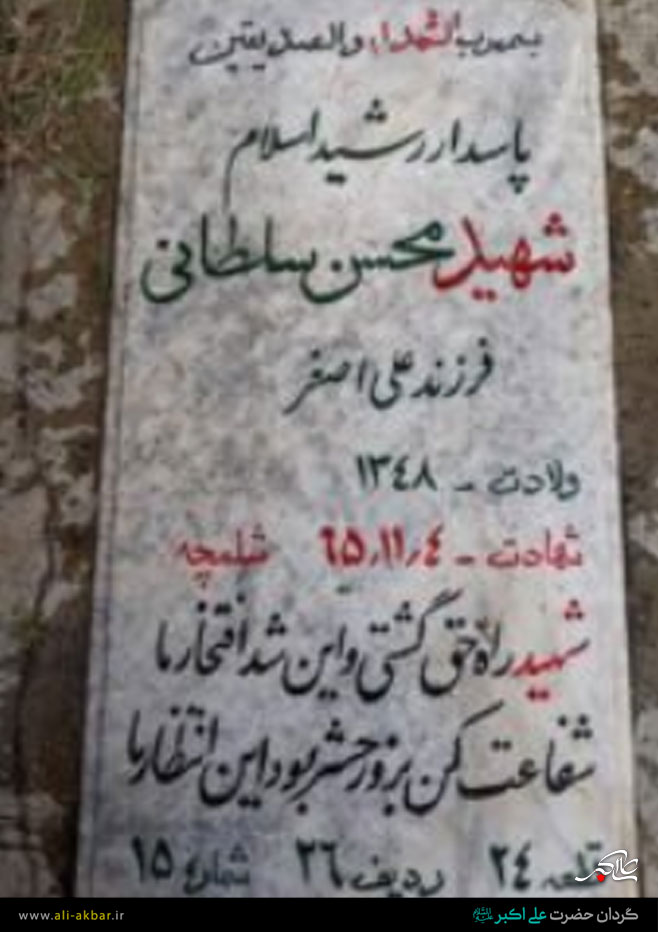 بسم رب الشهداء والصدیقین
پاسدار رشید اسلام
شهید محسن سلطانی
فرزند علی اصغر
ولادت - ۱۳٤۸
شهادت - ٦۵٫۱۱٫٤ شلمچه
شهید راه حق گشتی و این شد افتخار ما
شفاعت کن بروز حشر بود این انتظار ما
قطعه ۲٤ ردیف ۲٦ شماره ۱۵
علی اکبر
www.ali-akbar.ir
گردان حضرت علی اکبر